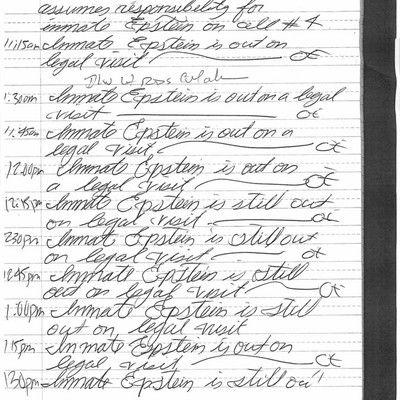 assumes responsibility for
inmate Epstein on cell #4
11:15am Inmate Epstein is out on
legal visit CE
1:30am Inmate Epstein is out on a legal
visit CE
11:45am Inmate Epstein is out on a
legal visit CE
12:00pm Inmate Epstein is out on
a legal visit CE
12:15pm Inmate Epstein is still out
on legal visit CE
230pm Inmate Epstein is still out
on legal visit CE
12:45pm Inmate Epstein is still
out on legal visit CE
1:00pm Inmate Epstein is still
out on legal visit
115pm Inmate Epstein is out on
legal visit CE
130pm Inmate Epstein is still out